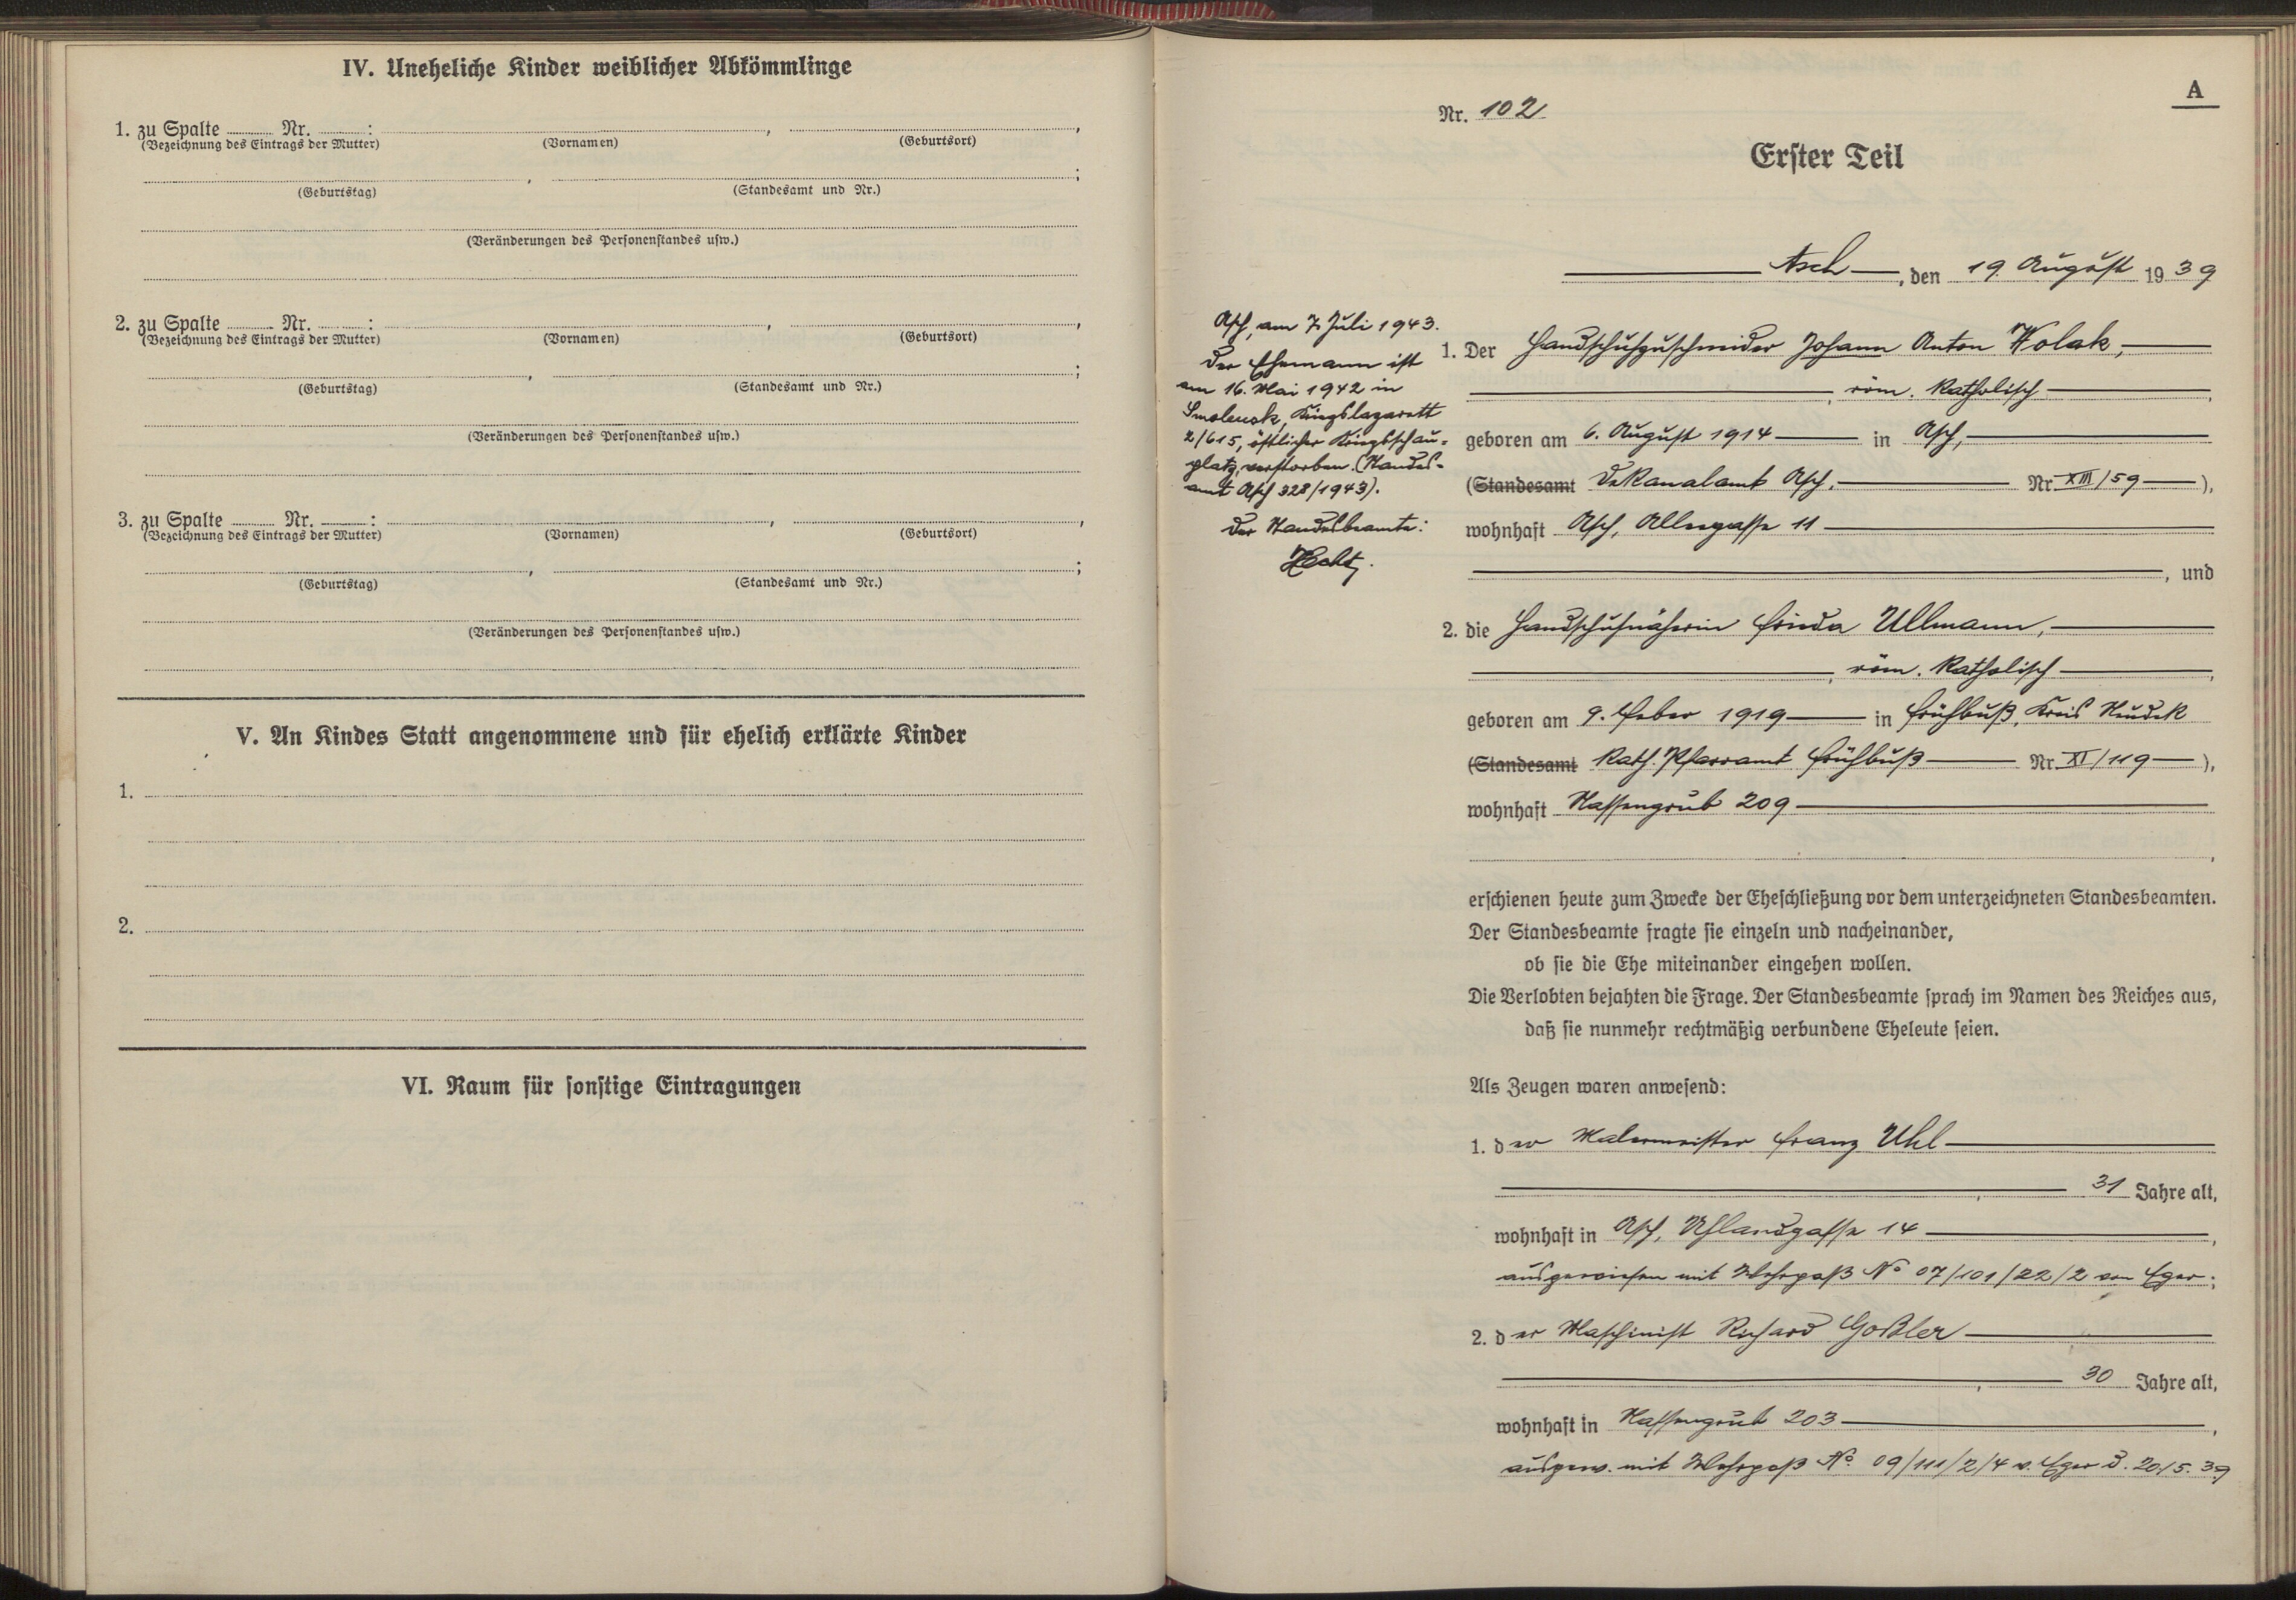 IV. Uneheliche Kinder weiblicher Abkömmlinge
1. zu Spalte ........ Nr. ........ :
(Bezeichnung des Eintrags der Mutter) (Vornamen) (Geburtsort)
(Geburtstag) (Standesamt und Nr.)
(Veränderungen des Personenstandes usw.)
2. zu Spalte ........ Nr. ........ :
(Bezeichnung des Eintrags der Mutter) (Vornamen) (Geburtsort)
(Geburtstag) (Standesamt und Nr.)
(Veränderungen des Personenstandes usw.)
3. zu Spalte ........ Nr. ........ :
(Bezeichnung des Eintrags der Mutter) (Vornamen) (Geburtsort)
(Geburtstag) (Standesamt und Nr.)
(Veränderungen des Personenstandes usw.)
V. An Kindes Statt angenommene und für ehelich erklärte Kinder
1.
2.
VI. Raum für sonstige Eintragungen
A
Nr. 102
Erster Teil
Asch, den 19. August 1939
Asch, am 7. Juli 1943.
Der Ehemann ist
am 16. Mai 1942 in
Smolensk, Kriegslazarett
2/615, östlicher Kriegsschau-
platz, verstorben. (Standes-
amt Asch 328/1943).
Der Standesbeamte:
Hecht.
1. Der Handschuhzuschneider Johann Anton Wolak,
, röm. katholisch,
geboren am 6. August 1914 in Asch,
(Standesamt Dekanalamt Asch, Nr. XIII/59),
wohnhaft Asch, Alleegasse 11
, und
2. die Handschuhnäherin Frieda Ullmann,
, röm. katholisch,
geboren am 9. Feber 1919 in Frühbuß, Kreis Neudek
(Standesamt Kath. Pfarramt Frühbuß Nr. XI/119),
wohnhaft Nassengrub 209
,
erschienen heute zum Zwecke der Eheschließung vor dem unterzeichneten Standesbeamten.
Der Standesbeamte fragte sie einzeln und nacheinander,
ob sie die Ehe miteinander eingehen wollen.
Die Verlobten bejahten die Frage. Der Standesbeamte sprach im Namen des Reiches aus,
daß sie nunmehr rechtmäßig verbundene Eheleute seien.
Als Zeugen waren anwesend:
1. der Malermeister Franz Uhl
, 31 Jahre alt,
wohnhaft in Asch, Uhlandgasse 14,
ausgewiesen mit Wehrpaß No 07/101/22/2 von Eger;
2. der Maschinist Richard Goßler
, 30 Jahre alt,
wohnhaft in Nassengrub 203,
ausgew. mit Wehrpaß No. 09/111/2/4 v. Eger d. 20/5. 39